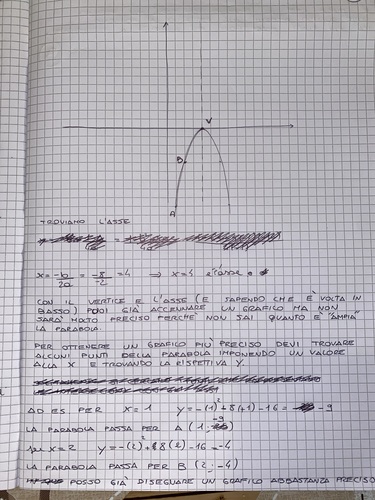 V
B
A
TROVIAMO L'ASSE
x = -b/2a = -8/-2 = 4 ⇒ x = 4 è l'asse
CON IL VERTICE E L'ASSE (E SAPENDO CHE È VOLTA IN
BASSO) PUOI GIÀ ACCENNARE UN GRAFICO MA NON
SARÀ MOLTO PRECISO PERCHÉ NON SAI QUANTO È "AMPIA"
LA PARABOLA.
PER OTTENERE UN GRAFICO PIÙ PRECISO DEVI TROVARE
ALCUNI PUNTI DELLA PARABOLA IMPONENDO UN VALORE
ALLA X E TROVANDO LA RISPETTIVA Y
AD ES. PER X = 1 y = -(1)² + 8(+1) - 16 = -9
LA PARABOLA PASSA PER A (1; -9)
per x = 2 y = -(2)² + 8(2) - 16 = -4
LA PARABOLA PASSA PER B (2; -4)
POSSO GIÀ DISEGNARE UN GRAFICO ABBASTANZA PRECISO